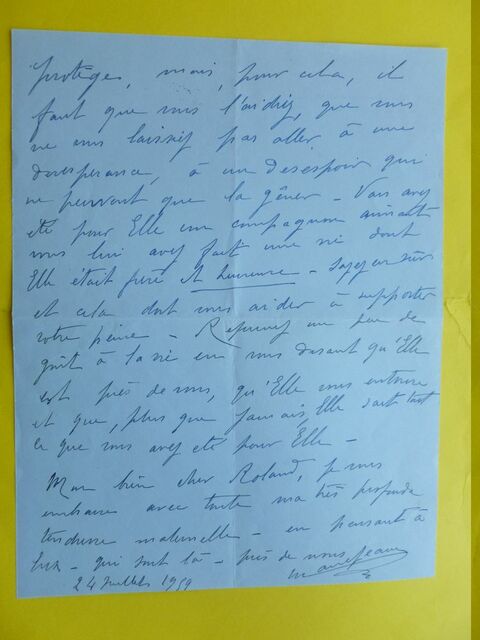 protéger, mais, pour cela, il
faut que vous l'aidiez, que vous
ne vous laissiez pas aller à une
désespérance, à un desespoir qui
ne peuvent que la gêner - Vous avez
été pour Elle un compagnon aimant
vous lui avez fait une vie dont
Elle était fière et heureuse - soyez en sûr
et cela doit vous aider à supporter
votre peine - Reprenez un peu de
goût à la vie en vous disant qu'Elle
est près de vous, qu'Elle vous entoure
et que, plus que jamais, Elle sait tout
ce que vous avez été pour Elle -
Mon bien cher Roland, je vous
embrasse avec toute ma très profonde
tendresse maternelle - en pensant à
Eux - qui sont là - près de nous
24 Juillet 1959